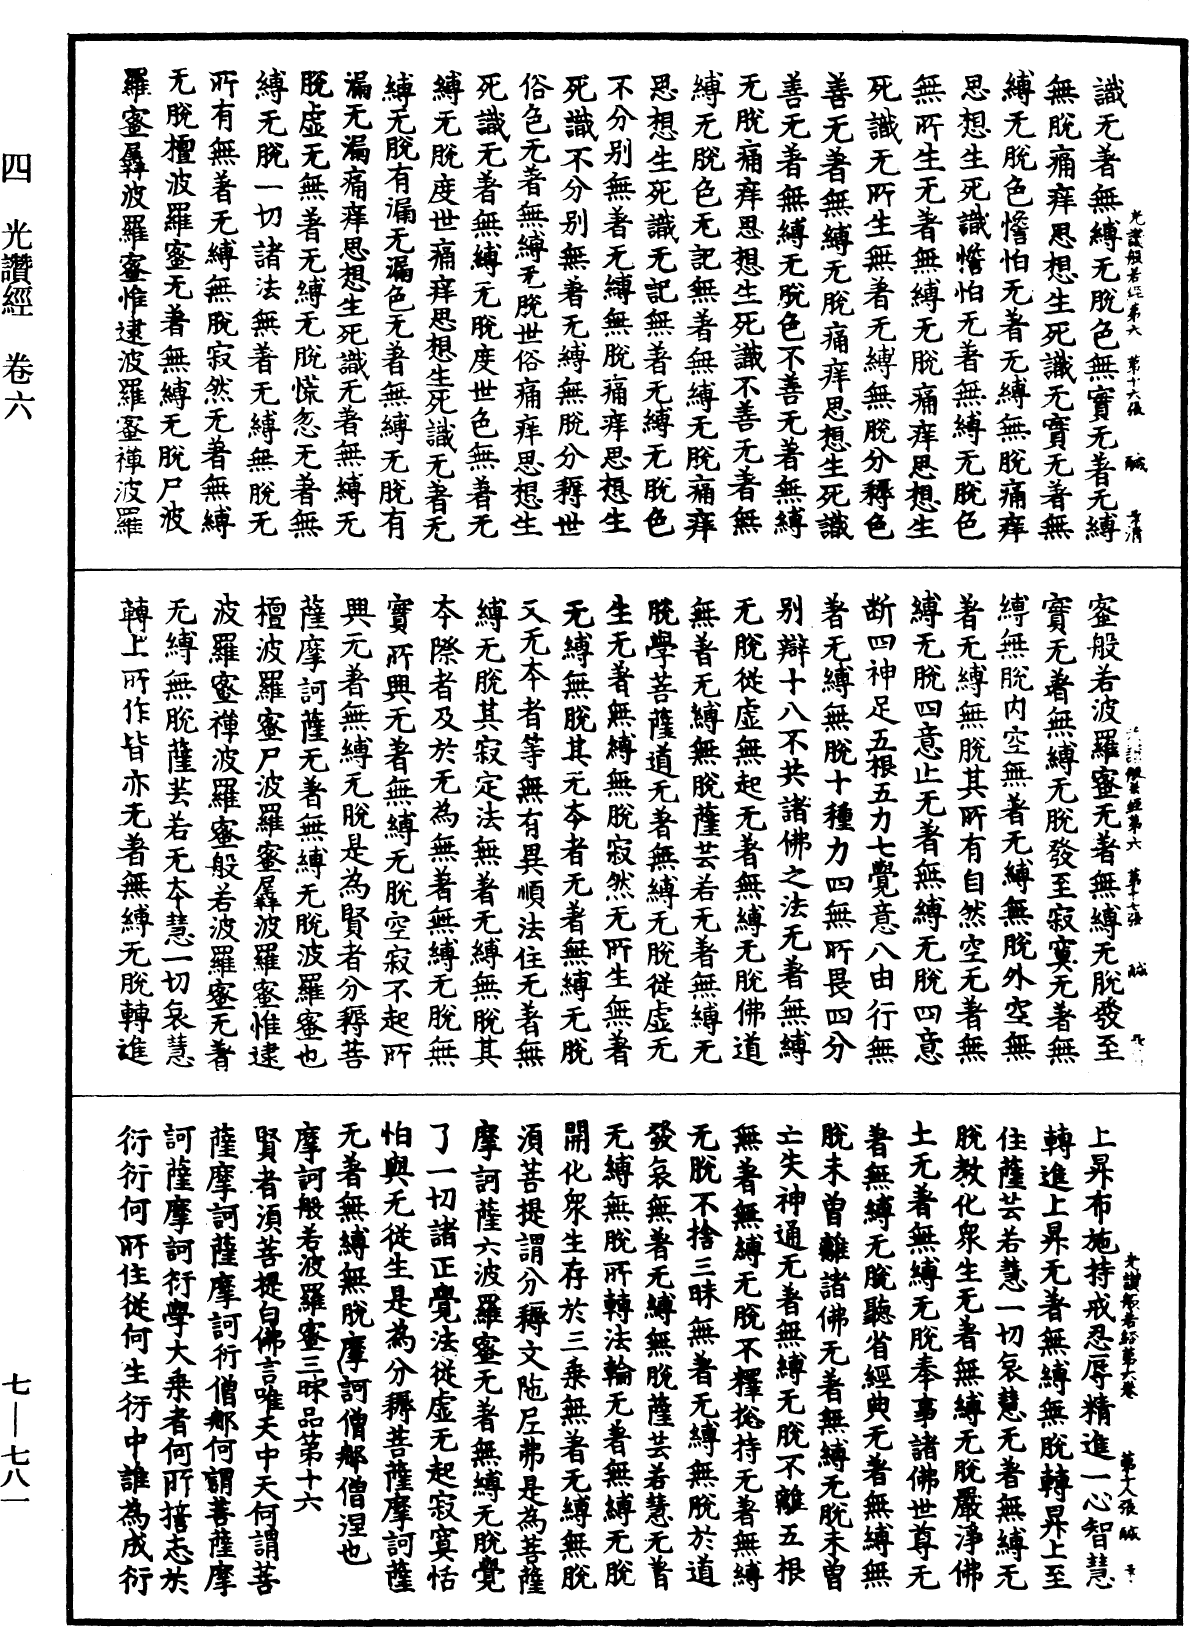 四 光讚經 卷六
七—七八一
光讚般若經第六 第十六張 醎
識无著無縛无脫色無實无著无縛
無脫痛痒思想生死識无實无著無
縛无脫色憺怕无著无縛無脫痛痒
思想生死識憺怕无著無縛无脫色
無所生无著無縛无脫痛痒思想生
死識无所生無著无縛無脫分稱色
善无著無縛无脫痛痒思想生死識
善无著無縛无脫色不善无著無縛
无脫痛痒思想生死識不善无著無
縛无脫色无記無著無縛无脫痛痒
思想生死識无記無著无縛无脫色
不分别無著无縛無脫痛痒思想生
死識不分别無著无縛無脫分稱世
俗色无著無縛无脫世俗痛痒思想生
死識无著無縛无脫度世色無著无
縛无脫度世痛痒思想生死識无著无
縛无脫有漏无漏色无著無縛无脫有
漏无漏痛痒思想生死識无著無縛无
脫虛无無著无縛无脫慌忽无著無
縛无脫一切諸法無著无縛無脫无
所有無著无縛無脫寂然无著無縛
无脫檀波羅蜜无著無縛无脫尸波
羅蜜羼波羅蜜惟逮波羅蜜禪波羅
光讚般若經第六 第十七張 醎
蜜般若波羅蜜无著無縛无脫發至
實无著無縛无脫發至寂寞无著無
縛無脫内空無著无縛無脫外空無
著无縛無脫其所有自然空无著無
縛无脫四意止无著無縛无脫四意
断四神足五根五力七覺意八由行無
著无縛無脫十種力四無所畏四分
别辯十八不共諸佛之法无著無縛
无脫從虛無起无著無縛无脫佛道
無著无縛無脫薩芸若无著無縛无
脫學菩薩道无著無縛无脫從虛无
生无著無縛無脫寂然无所生無著
无縛無脫其无本者无著無縛无脫
又无本者等無有異順法住无著無
縛无脫其寂定法無著无縛無脫其
本際者及於无為無著無縛无脫無
實所興无著無縛无脫空寂不起所
興无著無縛无脫是為賢者分稱菩
薩摩訶薩无著無縛无脫波羅蜜也
檀波羅蜜尸波羅蜜羼波羅蜜惟逮
波羅蜜禪波羅蜜般若波羅蜜无著
无縛無脫薩芸若无本慧一切哀慧
轉上所作皆亦无著無縛无脫轉進
光讚般若經第六卷 第十八張 醎
上昇布施持戒忍辱精進一心智慧
轉進上昇无著無縛無脫轉昇上至
住薩芸若慧一切哀慧无著無縛无
脫教化衆生无著無縛无脫嚴淨佛
土无著無縛无脫奉事諸佛世尊无
著無縛无脫聽省經典无著無縛無
脫未曽離諸佛无著無縛无脫未曽
亡失神通无著無縛无脫不離五根
無著無縛无脫不釋捴持无著無縛
无脫不捨三昧無著无縛無脫於道
發哀無著无縛無脫薩芸若慧无著
无縛無脫所轉法輪无著無縛无脫
開化衆生存於三乘無著无縛無脫
須菩提謂分稱文陁尼弗是為菩薩
摩訶薩六波羅蜜无著無縛无脫覺
了一切諸正覺法從虛无起寂寞恬
怕與无從生是為分稱菩薩摩訶薩
无著無縛無脫摩訶僧郍僧涅也
摩訶般若波羅蜜三昧品第十六
賢者須菩提白佛言唯天中天何謂菩
薩摩訶薩摩訶衍僧郍何謂菩薩摩
訶薩摩訶衍學大乘者何所揞志於
衍衍何所住從何生衍中誰為成衍